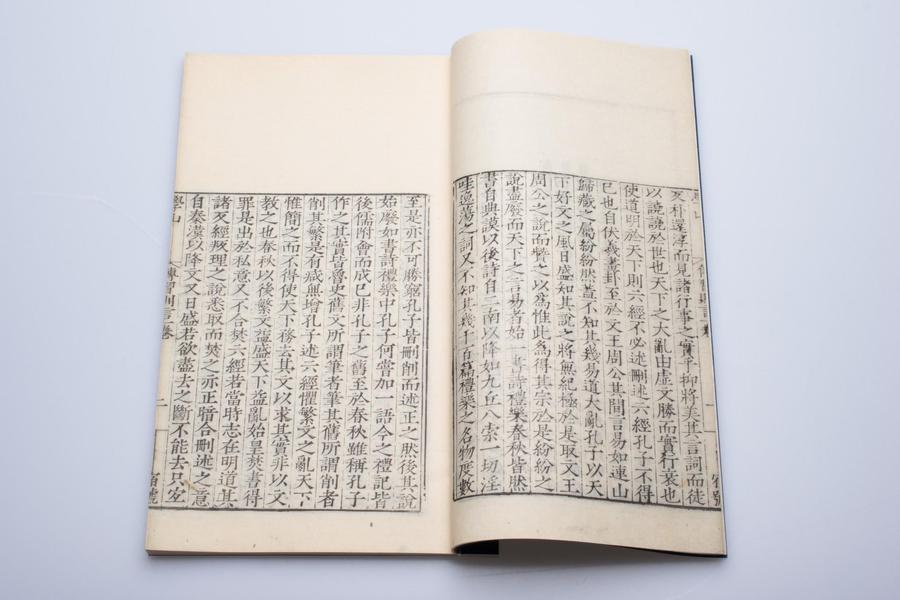 反朴還淳而見諸行事之實乎抑將美其言詞而徒
以譊譊於世也天下之大亂由虛文勝而實行衰也
使道明於天下則六經不必述刪述六經孔子不得
已也自伏羲畫卦至於文王周公其間言易如連山
歸藏之屬紛紛然蓋不知其幾易道大亂孔子以天
下好文之風日盛知其說之將無紀極於是取文王
周公之說而贊之以為惟此為得其宗於是紛紛之
說盡廢而天下之言易者始一書詩禮樂春秋皆然
書自典謨以後詩自二南以降如九丘八索一切淫
哇逸蕩之詞又不知其幾千百篇禮樂之名物度數
至是亦不可勝窮孔子皆刪削而述正之然後其說
始廢如書詩禮樂中孔子何嘗加一語今之禮記皆
後儒附會而成已非孔子之舊至於春秋雖稱孔子
作之其實皆魯史舊文所謂筆者筆其舊所謂削者
削其繁是有減無增孔子述六經懼繁文之亂天下
惟簡之而不得使天下務去其文以求其實非以文
教之也春秋以後繁文益盛天下益亂始皇焚書得
罪是出於私意又不合焚六經若當時志在明道其
諸反經叛理之說悉取而焚之亦正暗合刪述之意
自秦漢以降文又日盛若欲盡去之斷不能去只宜